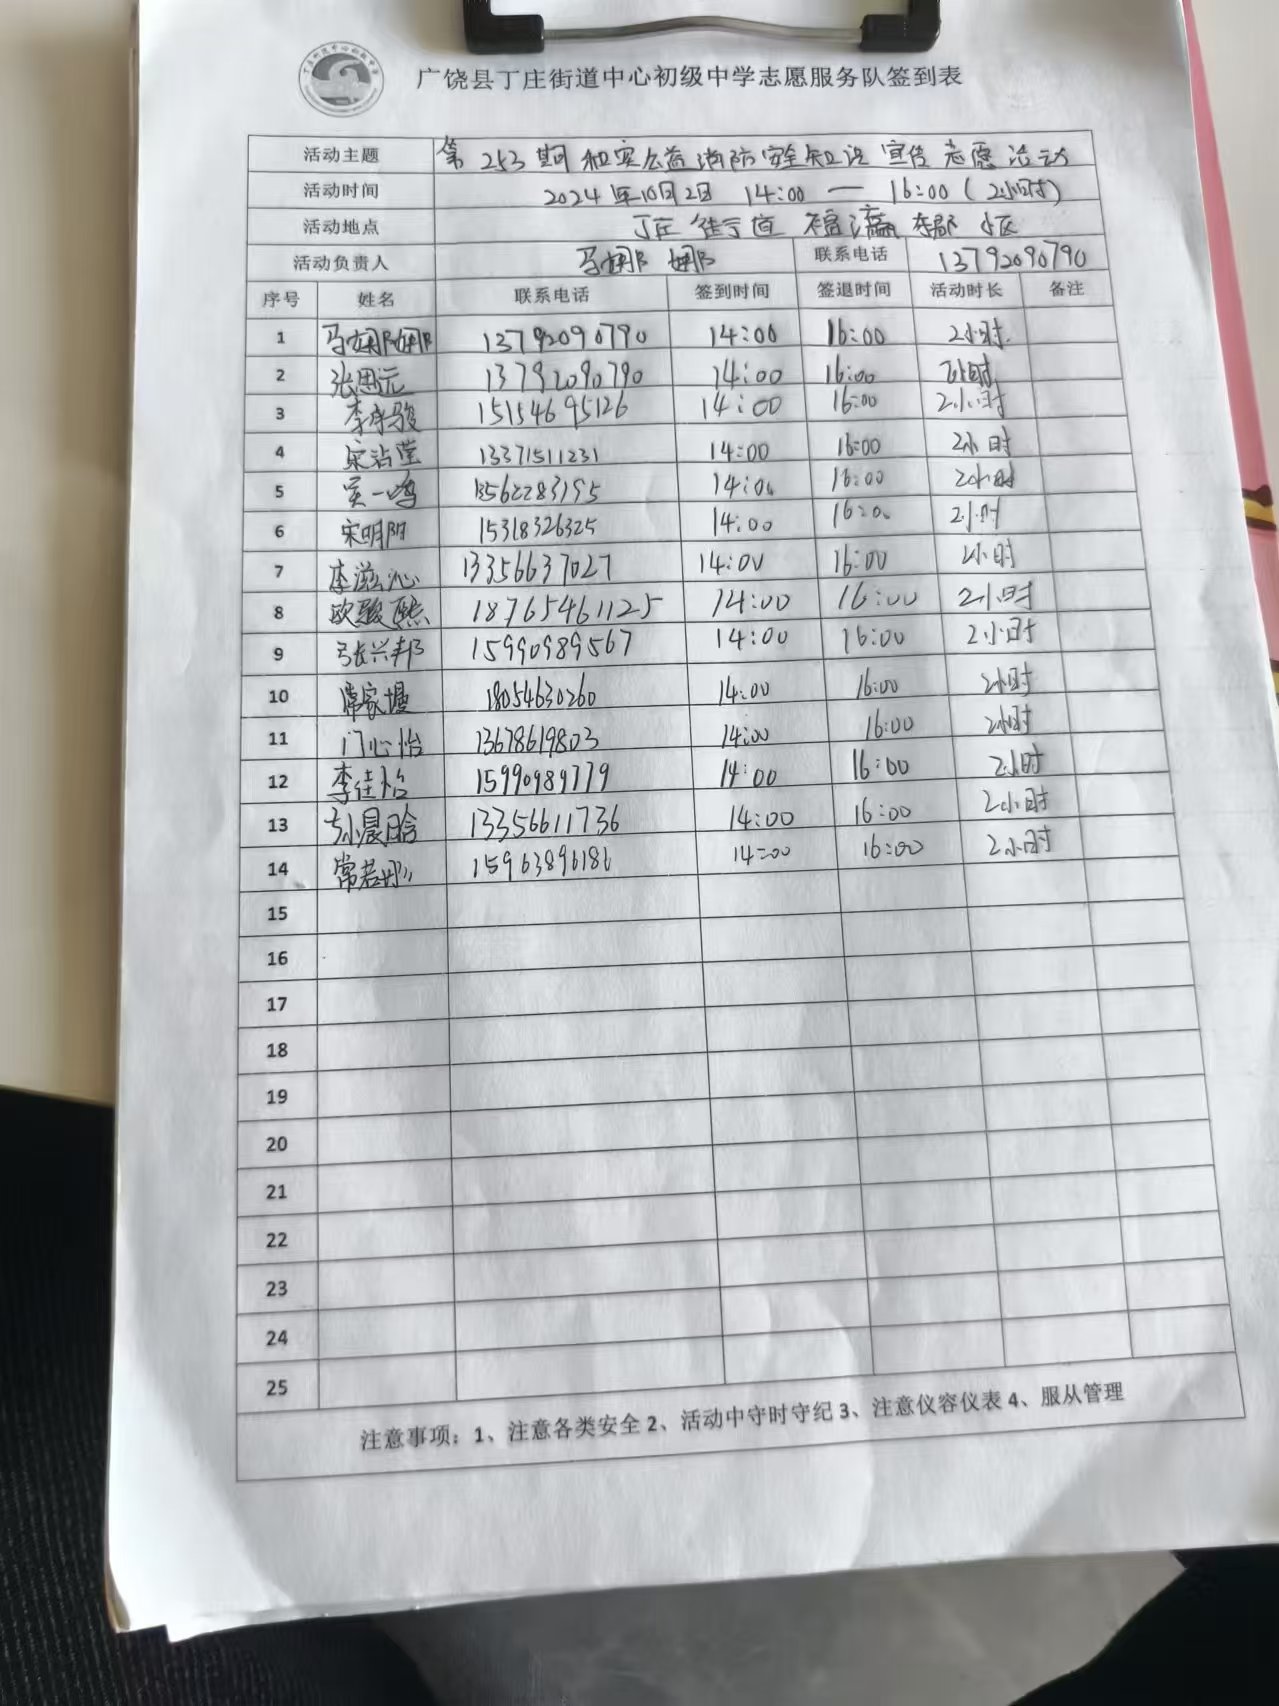 广饶县丁庄街道中心初级中学志愿服务队签到表
活动主题 第253期和实公益消防安全知识宣传志愿活动
活动时间 2024年10月2日 14:00 — 16:00(2小时)
活动地点 丁庄街道 福瀛东郡 小区
活动负责人 马娜娜 联系电话 13792090790
序号 姓名 联系电话 签到时间 签退时间 活动时长 备注
1 马娜娜 13792090790 14:00 16:00 2小时
2 张思远 13792090790 14:00 16:00 2小时
3 李承骏 15154695126 14:00 16:00 2小时
4 宋沾莹 13371511231 14:00 16:00 2小时
5 吴一鸣 13562283195 14:00 16:00 2小时
6 宋明阳 15318326325 14:00 16:00 2小时
7 李滋沁 13356637027 14:00 16:00 2小时
8 欧骏熙 18765461125 14:00 16:00 2小时
9 张兴邦 15990989567 14:00 16:00 2小时
10 18054630260 14:00 16:00 2小时
11 门心怡 13678619803 14:00 16:00 2小时
12 李佳怡 15990989779 14:00 16:00 2小时
13 孙晨晗 13356611736 14:00 16:00 2小时
14 15963896186 14:00 16:00 2小时
15
16
17
18
19
20
21
22
23
24
25
注意事项:1、注意各类安全 2、活动中守时守纪 3、注意仪容仪表 4、服从管理